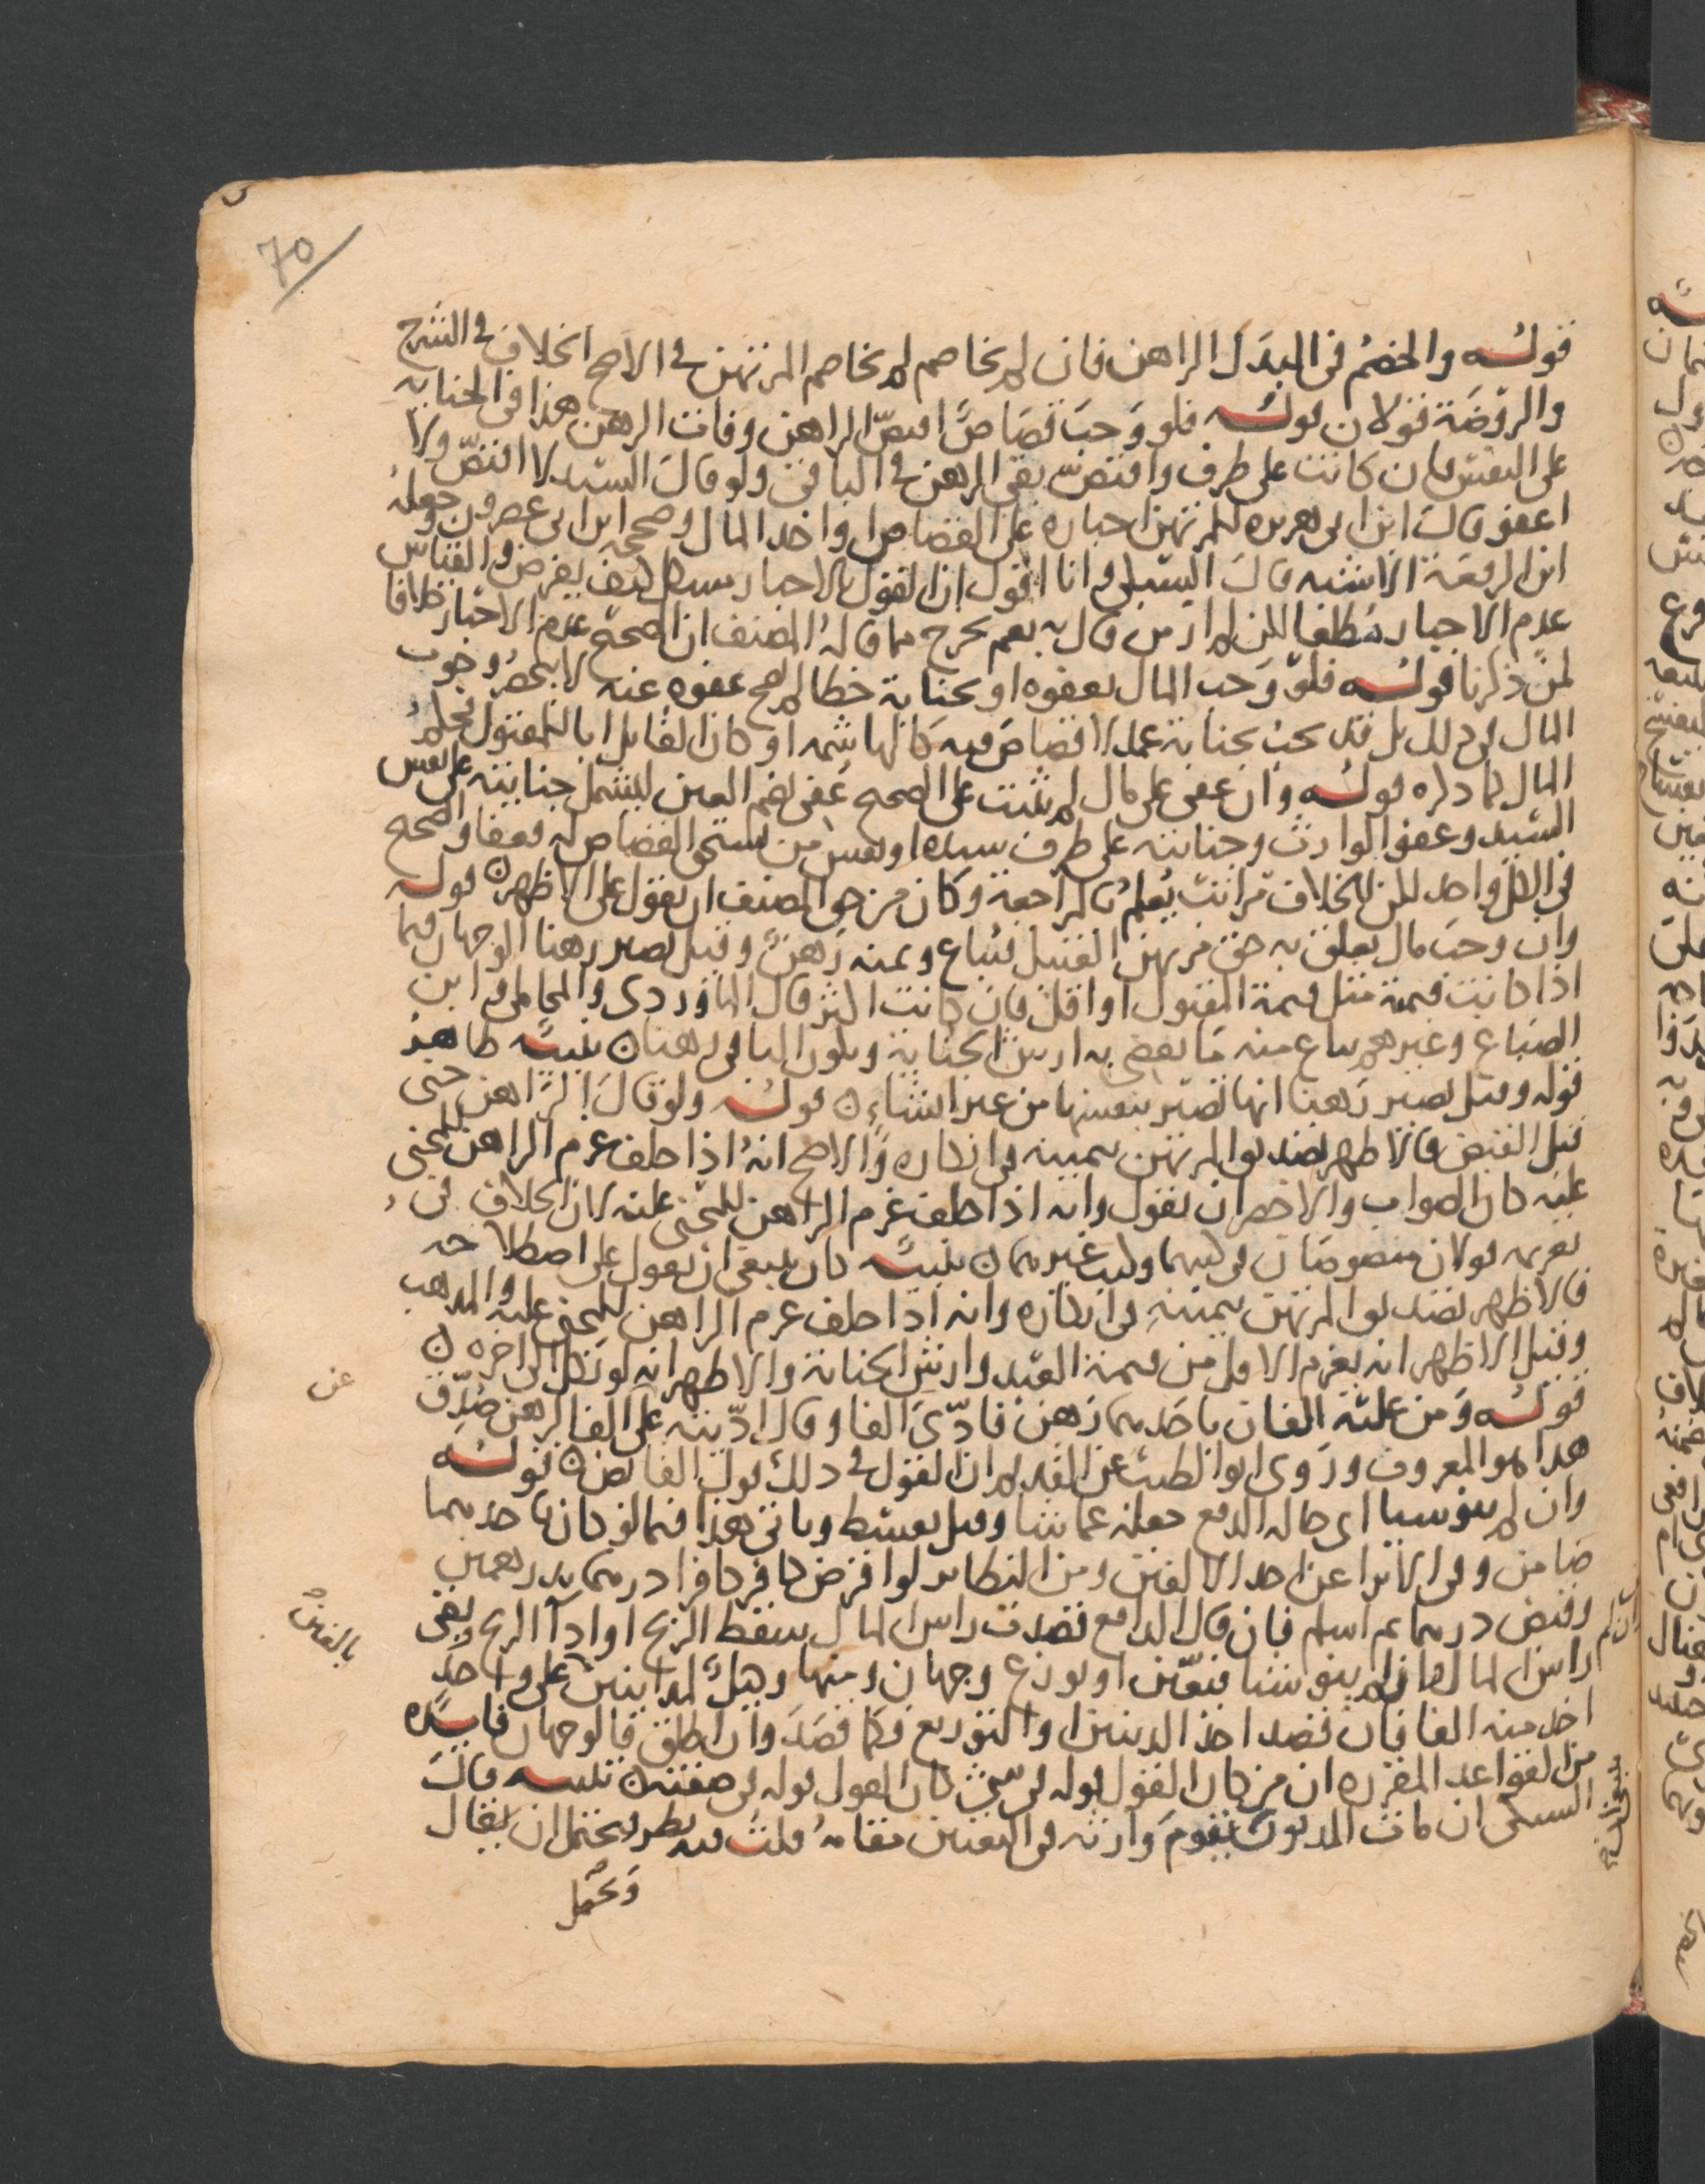 70
قوله والخصم في البدل الراهن فان لم يخاصم لم يخاصم المرتهن في الاصح الخلاف في الشرح
والروضة قولان قوله فلو وجب قصاص اقتص الراهن وفات الرهن هذا في الجناية
على النفس فان كانت على طرف واقتص بقي الرهن في الباقي ولو قال السيد لا اقتص ولا
اعفو قال ابن ابي هريره للمرتهن اجباره على القصاص او اخد المال وصححه ابن ابي عصرون وجعله
ابن الرفعة الاشبه قال السبكي وانا اقول ان القول بالاجبار مشكل كيف يفرض والقياس
عدم الاجبار مطلقا لكن لم ار من قال به نعم يخرج مما قاله المصنف ان الصحيح عدم الاجبار خلافا
لمن ذكرنا قوله فلو وجب المال بعفوه او بجناية خطا لم يصح عفوه عنه لا ينحصر وجوب
المال في ذلك بل قد يجب بجناية عمد لا قصاص فيه كالهاشمه او كان القاتل ابا للمقتول فحكم
المال كما ذكره قوله وان عفى على مال لم يثبت على الصحيح عفى بضم العين ليشمل جنايته على نفس
السيد وعفو الوارث وجنايته على طرف سيده او نفس من يستحق القصاص له فعفا والصحيح
في الكل واحد لكن للخلاف مراتب يعلم بالمراجعة وكان من حق المصنف ان يقول على الاظهر قوله
وان وجب مال تعلق به حق مرتهن القتيل فيباع وثمنه رهن وقيل يصير رهنا الوجهان فيما
اذا كانت قيمة مثل قيمة المقتول او اقل فان كانت اكثر قال الماوردي والمحاملي وابن
الصباغ وغيرهم يباع منه ما يقضى به ارش الجناية ويكون الباقي رهنا تنبيه ظاهر
قوله وقيل يصير رهنا انها تصير بنفسها من غير انشاء قوله ولو قال الراهن جنى
قبل القبض فالاظهر تصديق المرتهن بيمينه في انكاره والاصح انه اذا حلف غرم الراهن للمجني
عليه كان الصواب والاخصر ان يقول وانه اذا حلف غرم الراهن للمجني عليه لان الخلاف في
تغريمه قولان منصوصان في كتبهما وكتب غيرهما تنبيه كان ينبغي ان يقول على اصطلاحه
فالاظهر تصديق المرتهن بيمينه في انكاره وانه اذا حلف غرم الراهن للمجني عليه والمذهب
وقيل الاظهر انه يغرم الاقل من قيمة العبد وارش الجناية والاظهر انه لو نكل الى اخره
قوله ومن عليه الفان باحدهما رهن فادى الفا وقال اديته على الف الرهن صدق
هذا هو المعروف وروى ابو الطيب عن القديم ان القول في ذلك قول القابض قوله
وان لم ينو شيا اي حالة الدفع جعله عما شا وقيل يقسط وياتي هذا فيما لو كان باحدهما
ضامن وفي الابرا عن احد الالفين ومن النظائر لو اقرض كافر كافرا درهما بدرهمين
وقبض درهما ثم اسلم فان قال الدافع قصدت راس المال سقط الربح او ادا الربح بقي
راس المال فان لم ينو شيا فيعين او يوزع وجهان ومنها وكيل لمداينين على واحد
اخد منه الفا فان قصد احد الدينين او التوزيع فكما قصد وان اطلق فالوجهان فايده
من القواعد المقرره ان من كان القول قوله في شي كان القول قوله في صفته تنبيه قال
السبكي ان مات المديون فيقوم وارثه في التعيين مقامه قلت فيه نظر ويحتمل ان يقال
ويحتمل
عن
بالفين